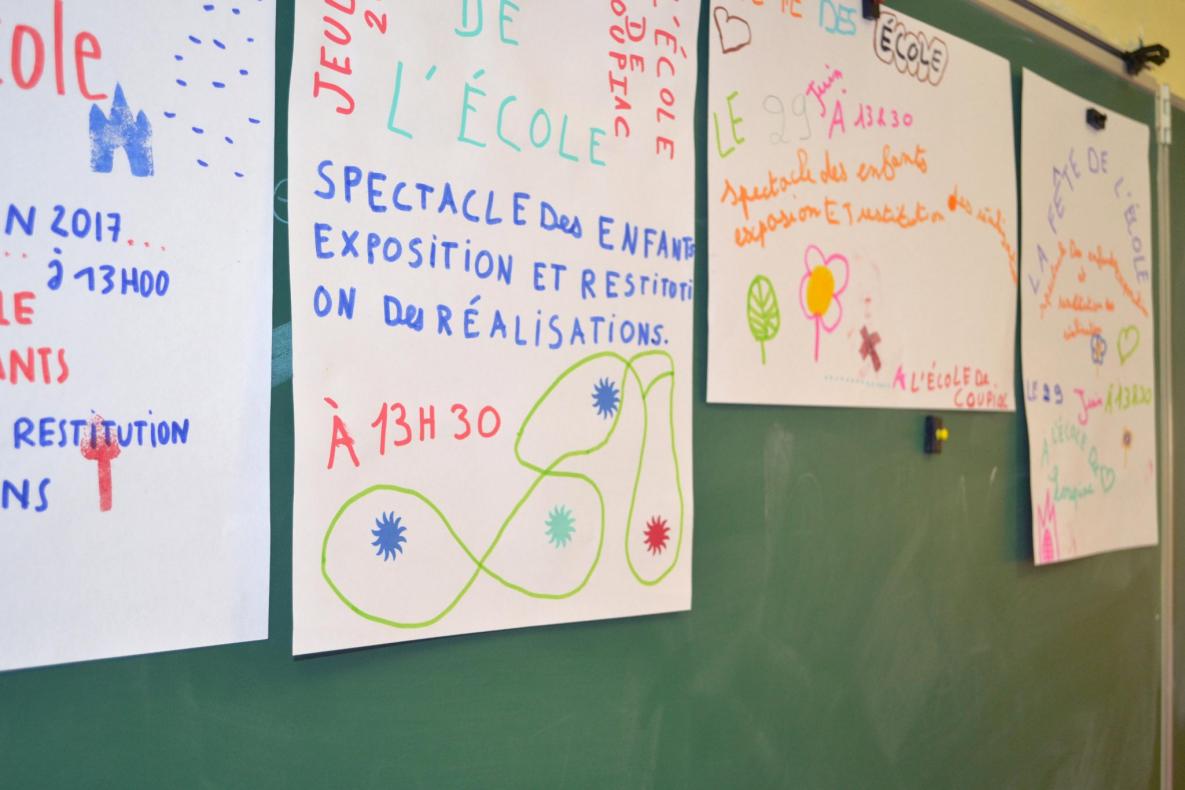 cole
N 2017...
à 13H00
LE
ANTS
RESTITUTION
NS
JEUD
2
DE
L'ÉCOLE
L'ÉCOLE
DE
COUPIAC
SPECTACLE Des ENFANTS
EXPOSITION ET RESTITUTI
ON Des RÉALISATIONS.
À 13H 30
DES
ÉCOLE
LE 29 Juin À 13h30
spectacle des enfants
exposion ET restitution des
A L'ÉCOLE De
COUPIAC
LA FÊTE DE L'ÉCOLE
Des enfants
et
LE 29 Juin À 13H30
A L'ÉCOLE De